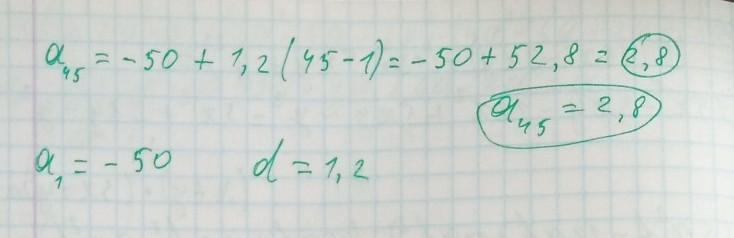 a₄₅ = -50 + 1,2(45-1) = -50 + 52,8 = 2,8
a₄₅ = 2,8
a₁ = -50 d = 1,2